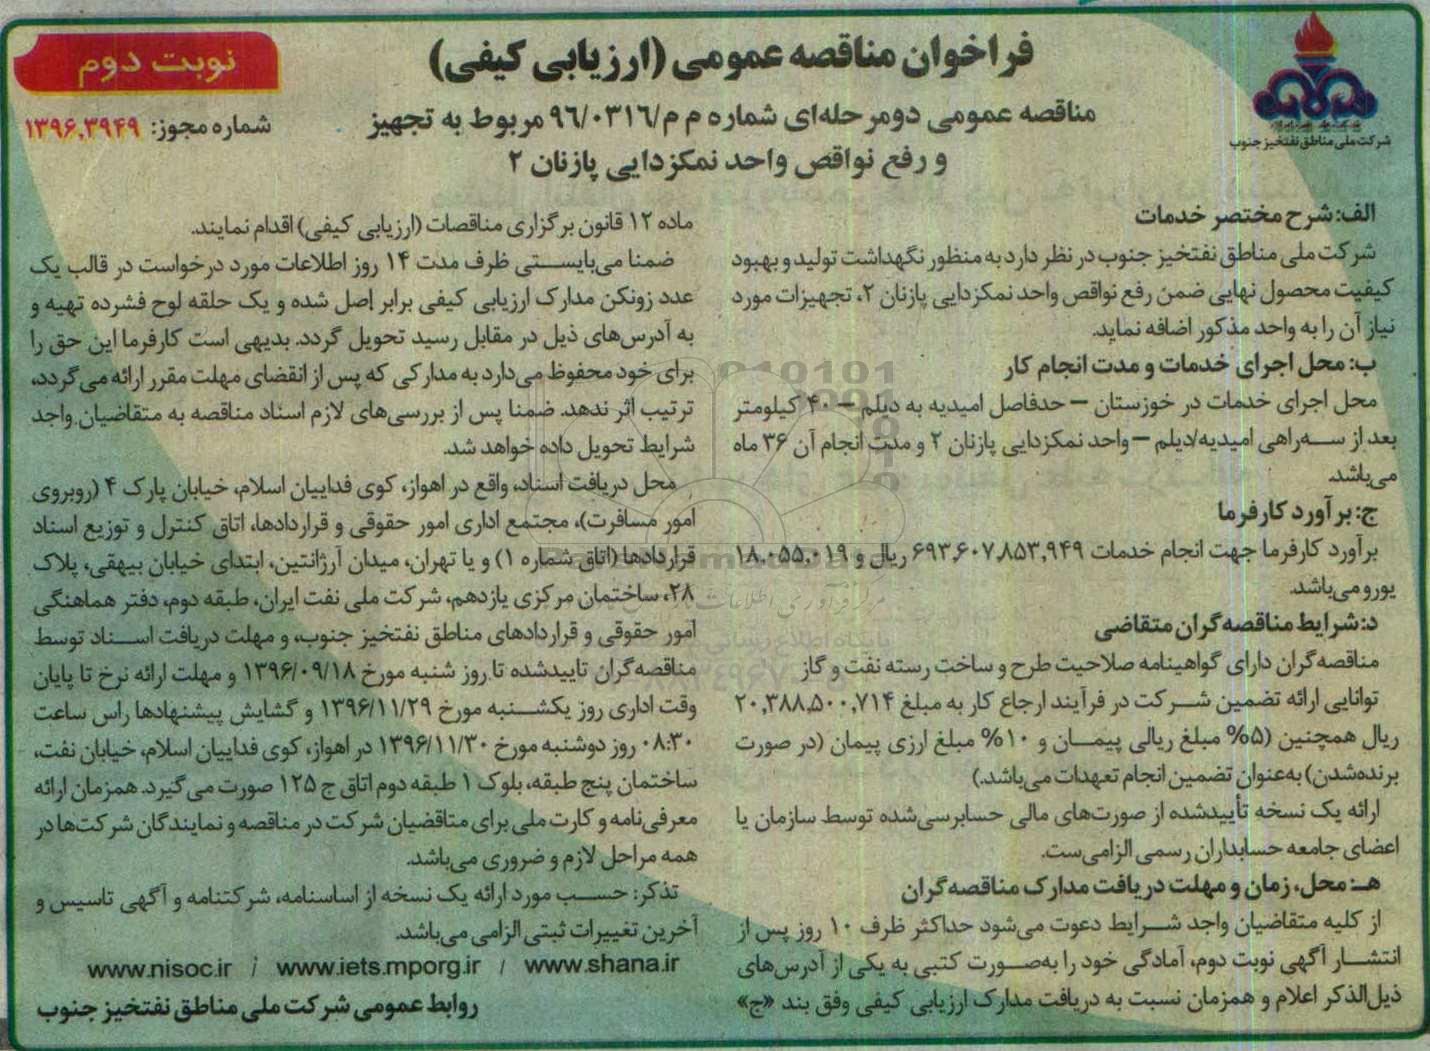 نوبت دوم
فراخوان مناقصه عمومی (ارزیابی کیفی)
مناقصه عمومی دومرحله‌ای شماره م م/۹۶/۰۳۱۶ مربوط به تجهیز
و رفع نواقص واحد نمکزدایی پازنان ۲
شماره مجوز: ۱۳۹۶.۳۹۴۹
شرکت ملی مناطق نفتخیز جنوب
الف: شرح مختصر خدمات
شرکت ملی مناطق نفتخیز جنوب در نظر دارد به منظور نگهداشت تولید و بهبود
کیفیت محصول نهایی ضمن رفع نواقص واحد نمکزدایی پازنان ۲، تجهیزات مورد
نیاز آن را به واحد مذکور اضافه نماید.
ب: محل اجرای خدمات و مدت انجام کار
محل اجرای خدمات در خوزستان – حدفاصل امیدیه به دیلم – ۴۰ کیلومتر
بعد از سه‌راهی امیدیه/دیلم – واحد نمکزدایی پازنان ۲ و مدت انجام آن ۳۶ ماه
می‌باشد.
ج: برآورد کارفرما
برآورد کارفرما جهت انجام خدمات ۶۹۳,۶۰۷,۸۵۳,۹۴۹ ریال و ۱۸,۰۵۵,۰۱۹
یورو می‌باشد.
د: شرایط مناقصه‌گران متقاضی
مناقصه‌گران دارای گواهینامه صلاحیت طرح و ساخت رسته نفت و گاز
توانایی ارائه تضمین شرکت در فرآیند ارجاع کار به مبلغ ۲۰,۳۸۸,۵۰۰,۷۱۴
ریال همچنین (۵% مبلغ ریالی پیمان و ۱۰% مبلغ ارزی پیمان (در صورت
برنده‌شدن) به‌عنوان تضمین انجام تعهدات می‌باشد.)
ارائه یک نسخه تأییدشده از صورت‌های مالی حسابرسی‌شده توسط سازمان یا
اعضای جامعه حسابداران رسمی الزامی‌ست.
هـ: محل، زمان و مهلت دریافت مدارک مناقصه‌گران
از کلیه متقاضیان واجد شرایط دعوت می‌شود حداکثر ظرف ۱۰ روز پس از
انتشار آگهی نوبت دوم، آمادگی خود را به‌صورت کتبی به یکی از آدرس‌های
ذیل‌الذکر اعلام و همزمان نسبت به دریافت مدارک ارزیابی کیفی وفق بند «ج»
ماده ۱۲ قانون برگزاری مناقصات (ارزیابی کیفی) اقدام نمایند.
ضمنا می‌بایستی ظرف مدت ۱۴ روز اطلاعات مورد درخواست در قالب یک
عدد زونکن مدارک ارزیابی کیفی برابر اصل شده و یک حلقه لوح فشرده تهیه و
به آدرس‌های ذیل در مقابل رسید تحویل گردد. بدیهی است کارفرما این حق را
برای خود محفوظ می‌دارد به مدارکی که پس از انقضای مهلت مقرر ارائه می‌گردد،
ترتیب اثر ندهد. ضمنا پس از بررسی‌های لازم اسناد مناقصه به متقاضیان واجد
شرایط تحویل داده خواهد شد.
محل دریافت اسناد، واقع در اهواز، کوی فداییان اسلام، خیابان پارک ۴ (روبروی
امور مسافرت)، مجتمع اداری امور حقوقی و قراردادها، اتاق کنترل و توزیع اسناد
قراردادها (اتاق شماره ۱) و یا تهران، میدان آرژانتین، ابتدای خیابان بیهقی، پلاک
۲۸، ساختمان مرکزی یازدهم، شرکت ملی نفت ایران، طبقه دوم، دفتر هماهنگی
امور حقوقی و قراردادهای مناطق نفتخیز جنوب، و مهلت دریافت اسناد توسط
مناقصه‌گران تاییدشده تا روز شنبه مورخ ۱۳۹۶/۰۹/۱۸ و مهلت ارائه نرخ تا پایان
وقت اداری روز یکشنبه مورخ ۱۳۹۶/۱۱/۲۹ و گشایش پیشنهادها راس ساعت
۰۸:۳۰ روز دوشنبه مورخ ۱۳۹۶/۱۱/۳۰ در اهواز، کوی فداییان اسلام، خیابان نفت،
ساختمان پنج طبقه، بلوک ۱ طبقه دوم اتاق ج ۱۲۵ صورت می‌گیرد. همزمان ارائه
معرفی‌نامه و کارت ملی برای متاقضیان شرکت در مناقصه و نمایندگان شرکت‌ها در
همه مراحل لازم و ضروری می‌باشد.
تذکر: حسب مورد ارائه یک نسخه از اساسنامه، شرکتنامه و آگهی تاسیس و
آخرین تغییرات ثبتی الزامی می‌باشد.
www.nisoc.ir / www.iets.mporg.ir / www.shana.ir
روابط عمومی شرکت ملی مناطق نفتخیز جنوب